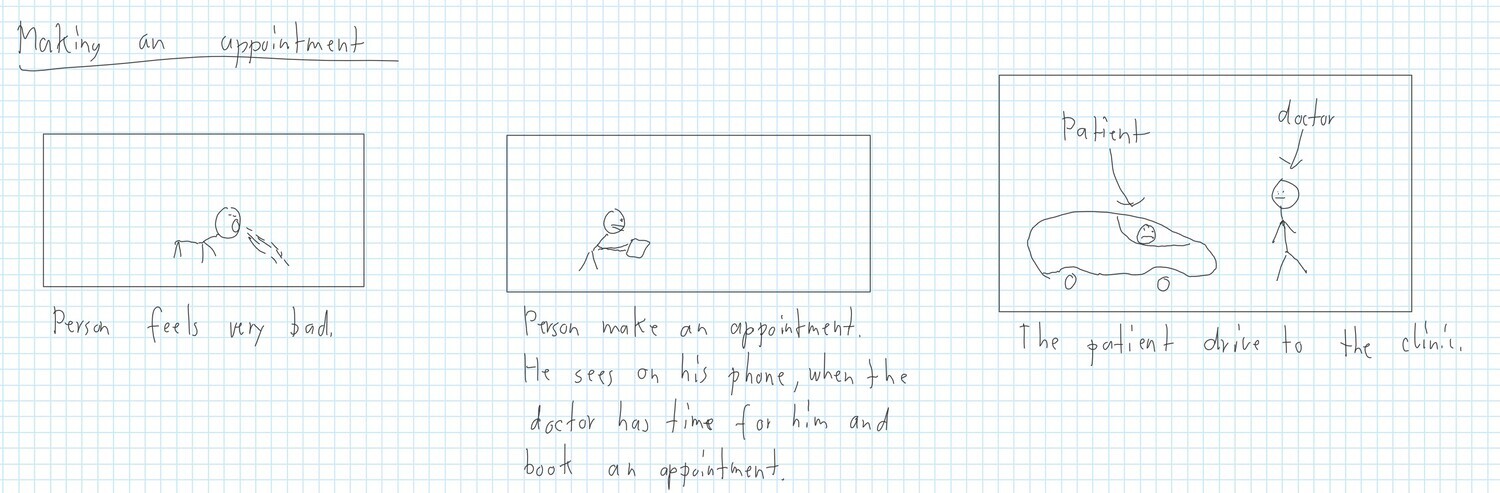 Making an appointment
Person feels very bad.
Person make an appointment.
He sees on his phone, when the
doctor has time for him and
book an appointment.
Patient
doctor
The patient drive to the clinic.